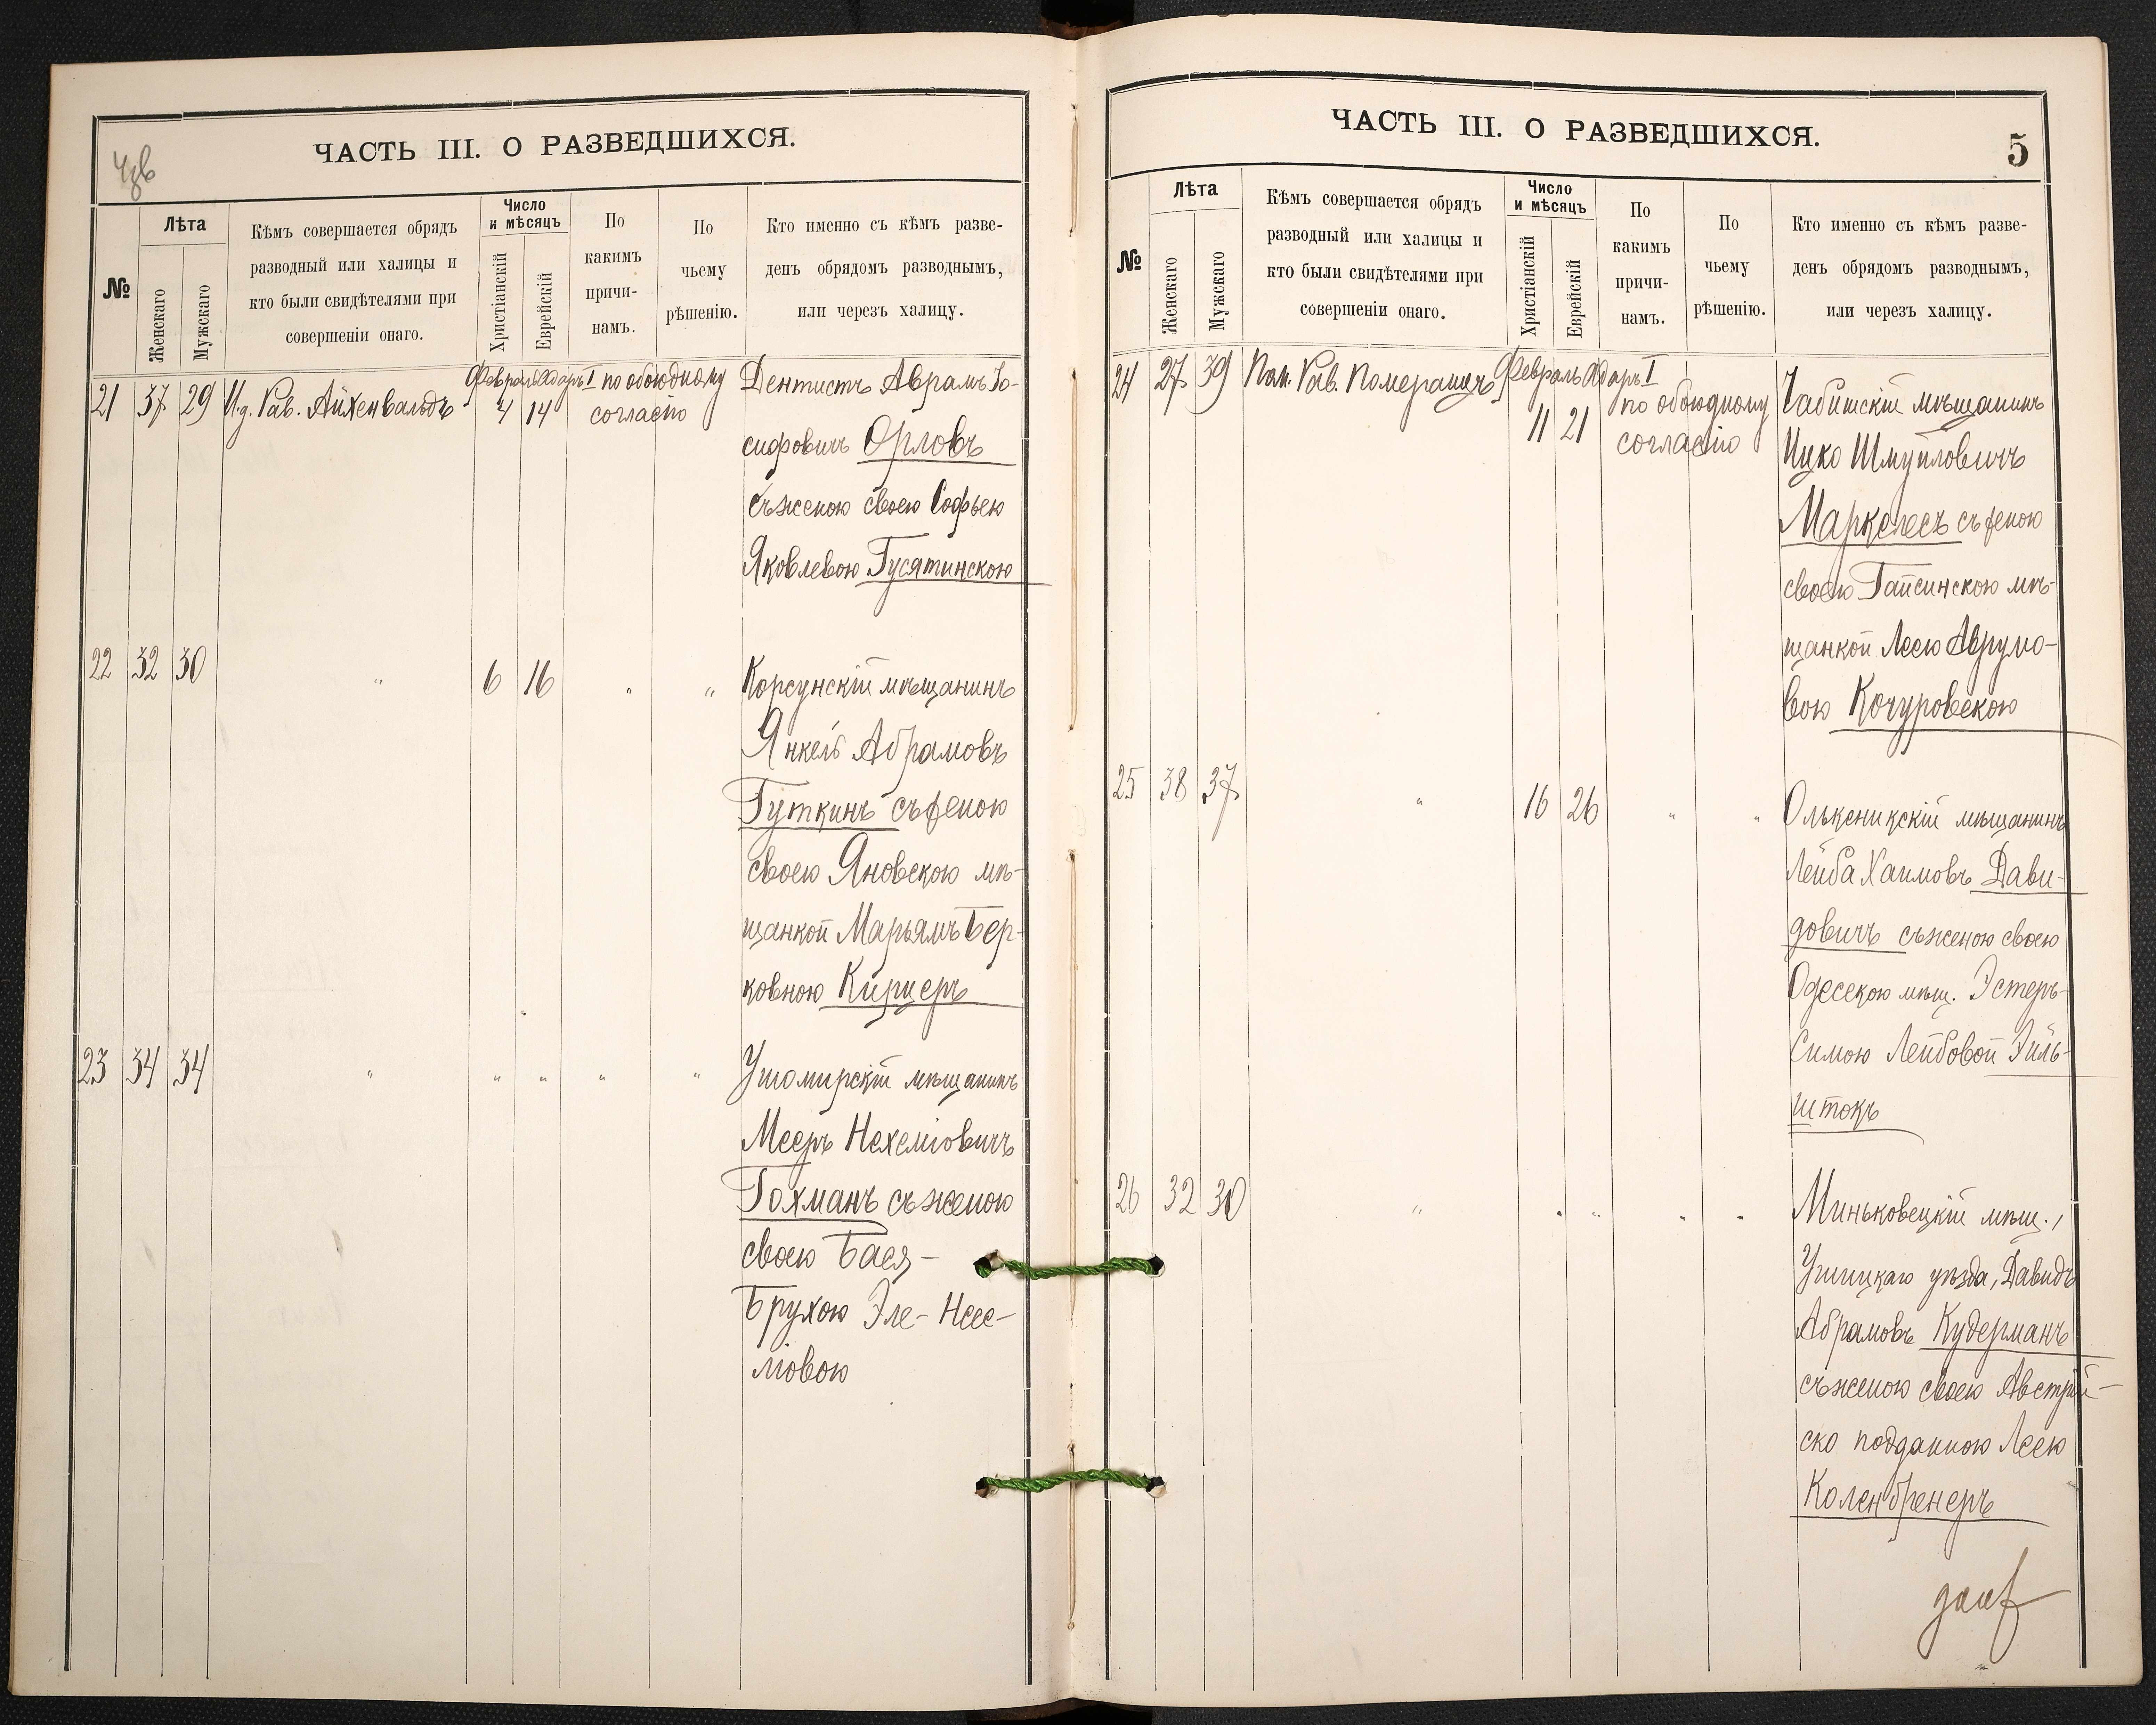 ЧАСТЬ III. О РАЗВЕДШИХСЯ.
№
Лѣта
Женскаго
Мужскаго
Кѣмъ совершается обрядъ
разводный или халицы и
кто были свидѣтелями при
совершеніи онаго.
Число
и мѣсяцъ
Христіанскій
Еврейскій
По
какимъ
причи-
намъ.
По
чьему
рѣшенію.
Кто именно съ кѣмъ разве-
денъ обрядомъ разводнымъ,
или черезъ халицу.
21 37 29 И.д. Рав. Айхенвальдъ
Февраль Адаръ I
4 14
по обоюдному
согласію
Дентистъ Аврамъ Іо-
сифовичъ Орловъ
съ женою своею Софьею
Яковлевою Гусятинскою
22 32 30 " 6 16 " "
Корсунскій мѣщанинъ
Янкель Абрамовъ
Гуткинъ съ женою
своею Яновскою мѣ-
щанкой Марьямъ Бер-
ковною Кирцеръ
23 34 34 " " " " "
Ушомирскій мѣщанинъ
Мееръ Нехеміовичъ
Гохманъ съ женою
своею Бася-
Брухою Эле-Несе-
міовою
ЧАСТЬ III. О РАЗВЕДШИХСЯ.
5
№
Лѣта
Женскаго
Мужскаго
Кѣмъ совершается обрядъ
разводный или халицы и
кто были свидѣтелями при
совершеніи онаго.
Число
и мѣсяцъ
Христіанскій
Еврейскій
По
какимъ
причи-
намъ.
По
чьему
рѣшенію.
Кто именно съ кѣмъ разве-
денъ обрядомъ разводнымъ,
или черезъ халицу.
24 27 39 Пом. Рав. Померанцъ
Февраль Адаръ I
11 21
по обоюдному
согласію
Чабитскій мѣщанинъ
Ицко Шмуйловичъ
Маркелесъ съ женою
своею Гайсинскою мѣ-
щанкой Леею Аврумо-
вою Кочуровскою
25 38 37 " 16 26 " "
Олькеникскій мѣщанинъ
Лейба Хаимовъ Дави-
довичъ съ женою своею
Одесскою мѣщ. Эстеръ-
Симою Лейбовой Эйль-
штокъ
26 32 30 " " " " "
Миньковецкій мѣщ.,
Ушицкаго уѣзда, Давидъ
Абрамовъ Кудерманъ
съ женою своею Австрій-
ско подданною Леею
Коленбренеръ